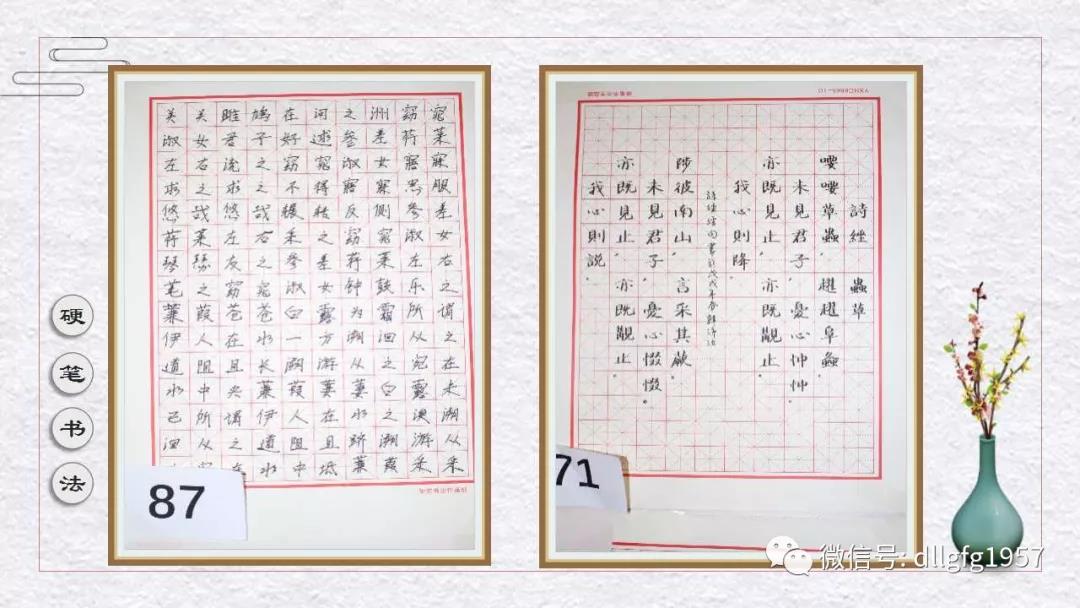 硬笔书法
关关雎鸠在河之洲窈窕
淑女君子好逑参差荇菜
左右流之窈窕淑女寤寐
求之求之不得寤寐思服
悠哉悠哉辗转反侧参差
荇菜左右采之窈窕淑女
琴瑟友之参差荇菜左右
芼之窈窕淑女钟鼓乐之
蒹葭苍苍白露为霜所谓
伊人在水一方溯洄从之
道阻且长溯游从之宛在
水中央蒹葭萋萋白露未
已所谓伊人在水之涘溯
洄从之道阻且跻溯游从
在水中坻蒹葭采采
87
詩經 蟲草
喓喓草蟲,趯趯阜螽。
未見君子,憂心忡忡。
亦既見止,亦既覯止。
我心則降。
詩經 書於戊戌年春
陟彼南山,言采其蕨。
未見君子,憂心惙惙。
亦既見止,亦既覯止。
我心則説。
71
微信号: dllgfg1957